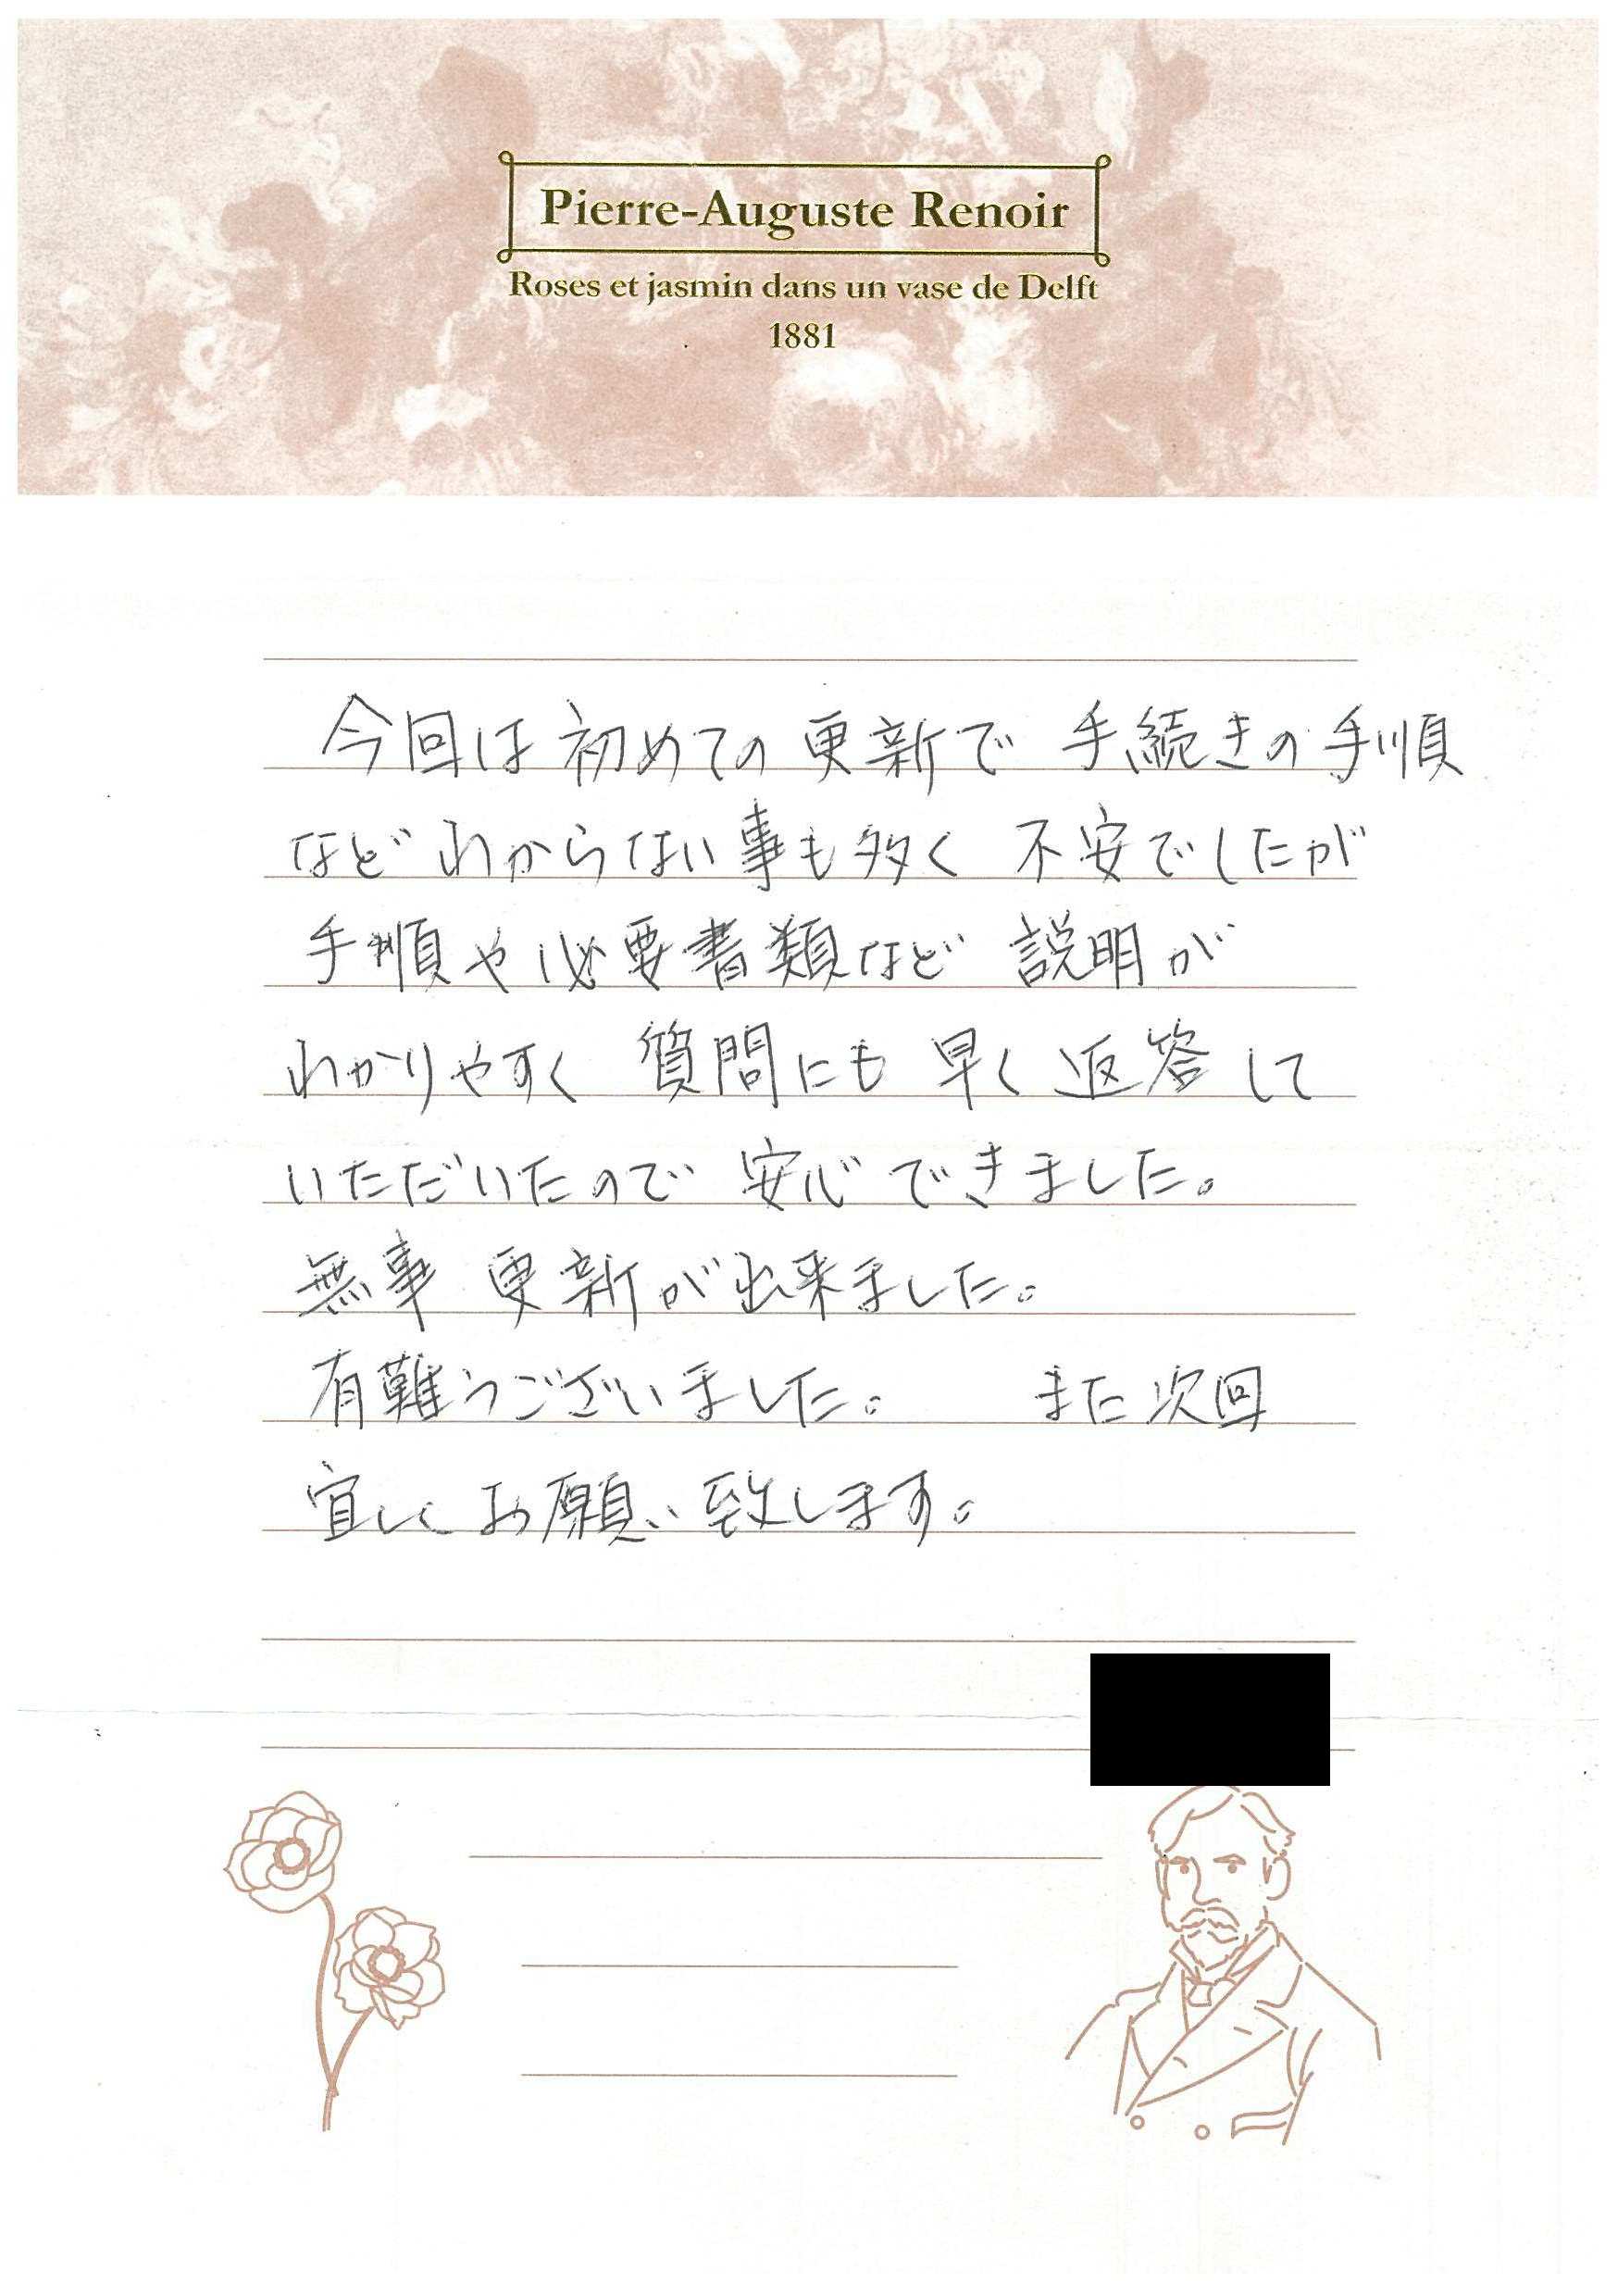 Pierre-Auguste Renoir
Roses et jasmin dans un vase de Delft
1881
今回は初めての更新で 手続きの手順
などわからない事も多く 不安でしたが
手順や必要書類など 説明が
わかりやすく 質問にも 早く返答して
いただいたので 安心できました。
無事 更新が出来ました。
有難うございました。 また次回
宜しくお願い致します。